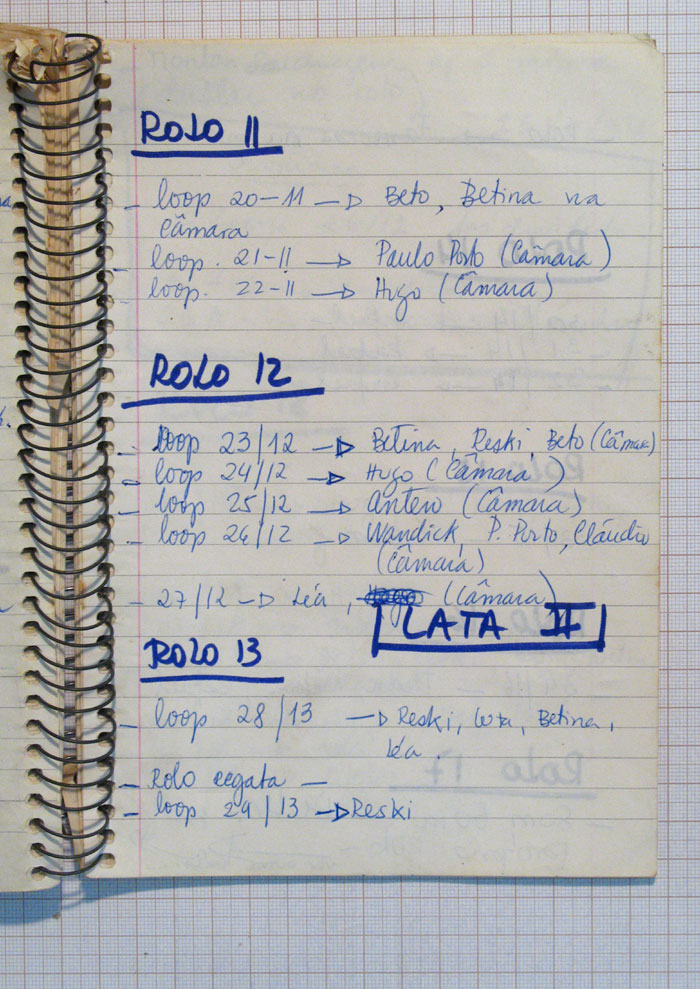 ROLO 11
- loop 20-11 → Beto, Betina na
câmara
- loop. 21-11 → Paulo Porto (Câmara)
loop. 22-11 → Hugo (Câmara)
ROLO 12
- loop 23/12 → Betina, Reski, Beto (Câmara)
- loop 24/12 → Hugo (Câmara)
- loop 25/12 → Antero (Câmara)
- loop 26/12 → Wandick, P. Porto, Cláudio
(Câmara)
- 27/12 → Léa, (Câmara)
LATA II
ROLO 13
- loop 28/13 → Reski, Betina,
Léa.
- Rolo regata -
- loop 29/13 → Reski